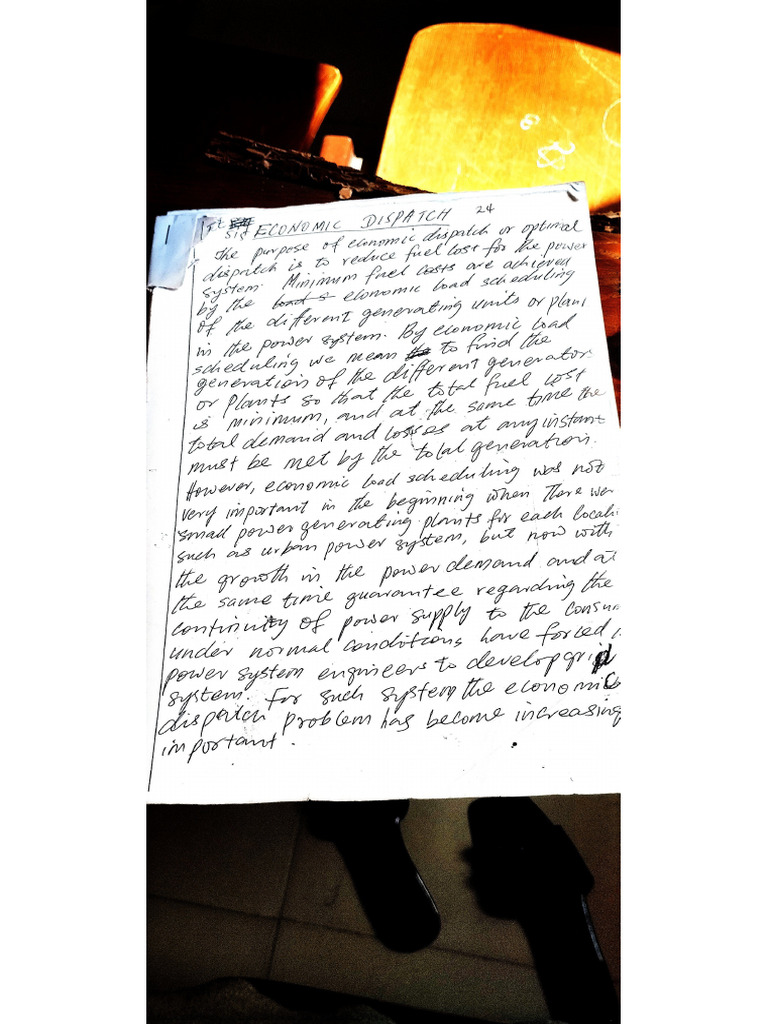 ECONOMIC DISPATCH 24
The purpose of economic dispatch or optimal
dispatch is to reduce fuel cost for the power
system. Minimum fuel costs are achieved
by the economic load scheduling
of the different generating units or plant
in the power system. By economic load
scheduling we mean to find the
generation of the different generator
or plants so that the total fuel cost
is minimum, and at the same time the
total demand and losses at any instant
must be met by the total generation.
However, economic load scheduling was not
very important in the beginning when there wer
small power generating plants for each locali
such as urban power system, but now with
the growth in the power demand and at
the same time guarantee regarding the
continuity of power supply to the consum
under normal conditions, have forced
power system engineers to develop grid
system. For such system the economic
dispatch problem has become increasing
important.